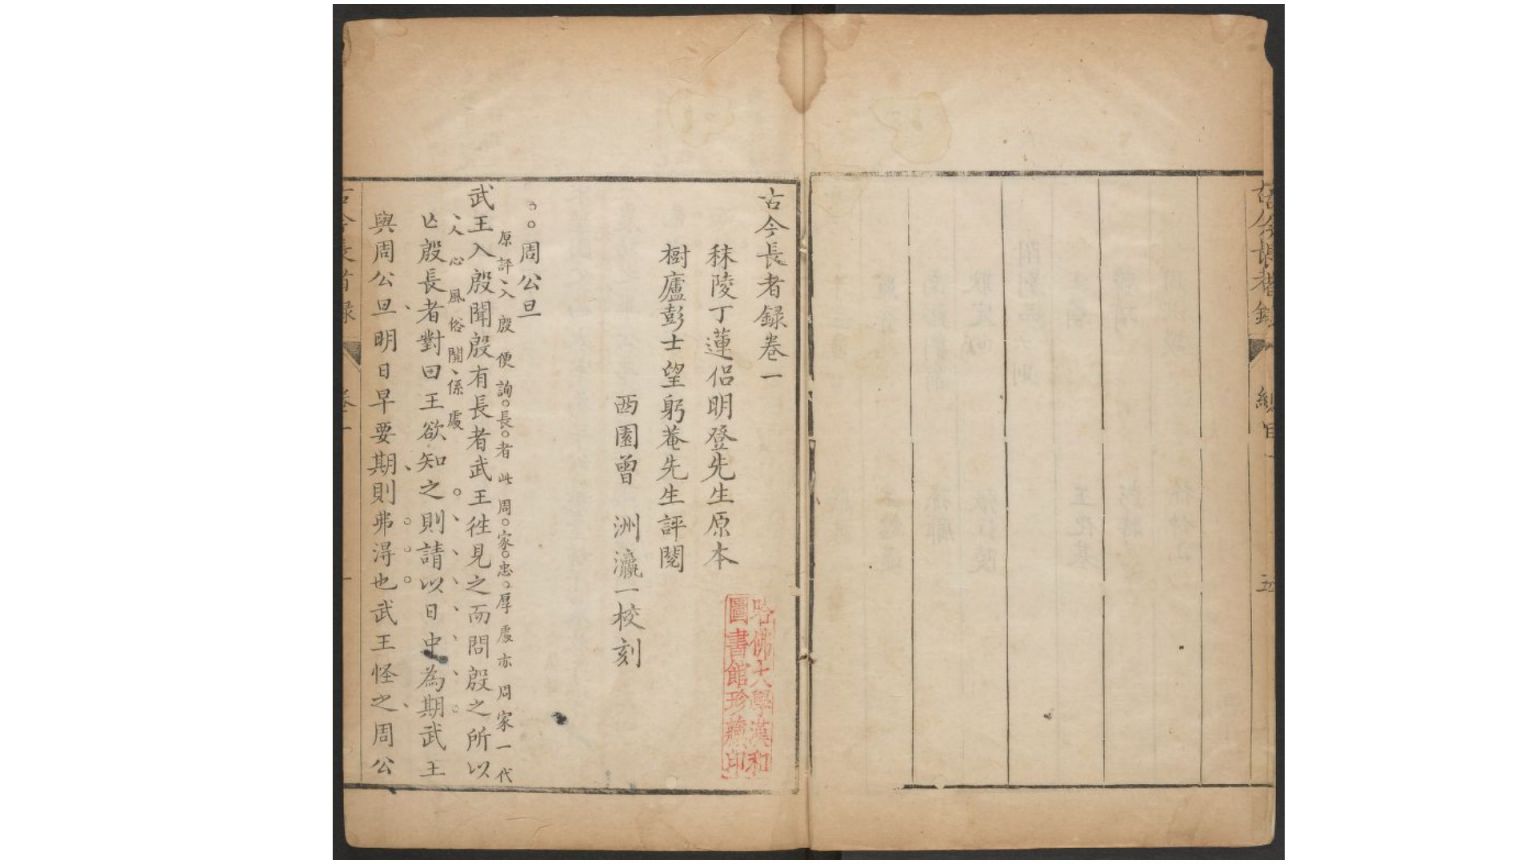 古今長者錄
總目
五
古今長者錄卷一
秣陵丁蓮侶明登先生原本
樹廬彭士望躬菴先生評閱
西園曾　洲瀛一校刻
哈佛大學漢和
圖書館珍藏印
周公旦
原評入殷便詢長者此周家忠厚處亦周家一代
武王入殷聞殷有長者武王徃見之而問殷之所以
人心風俗關係處
亡殷長者對曰王欲知之則請以日中為期武王
與周公旦明日早要期則弗得也武王怪之周公
古今長者錄
卷一
一